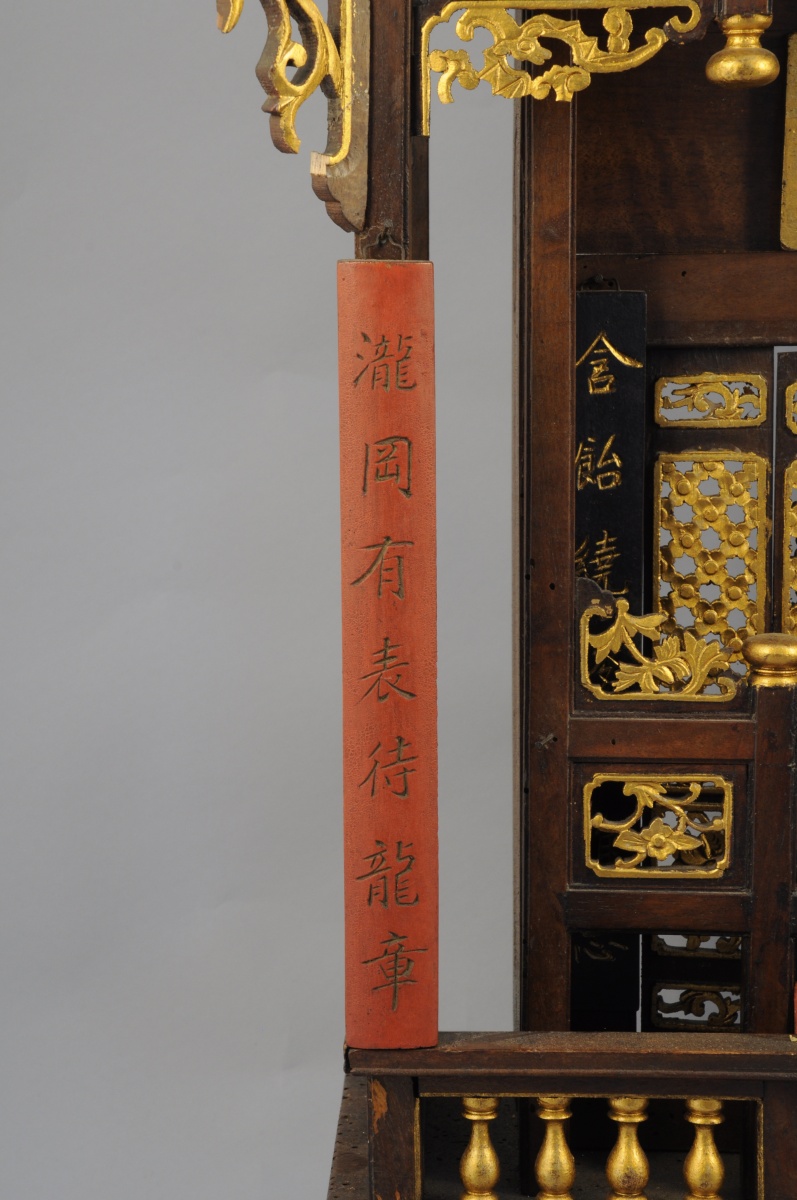 瀧岡有表待龍章
含飴繞